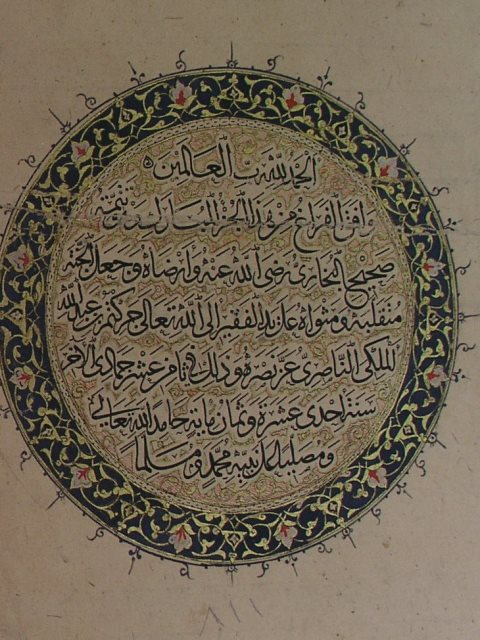 الحمد لله رب العالمين
وافق الفراغ من هذا الجزء المبارك تتمة
صحيح البخاري رضى الله عنه وارضاه وجعل الجنة
منقلبه ومثواه على يد الفقير الى الله تعالى بن عبد الله
الملكى الناصرى عز نصره وذلك فى ثامن عشر جمادى الاخر
سنة احدى عشرة وثمان ماية حامدا لله تعالى
ومصليا على نبيه محمد ومسلما
٨١١